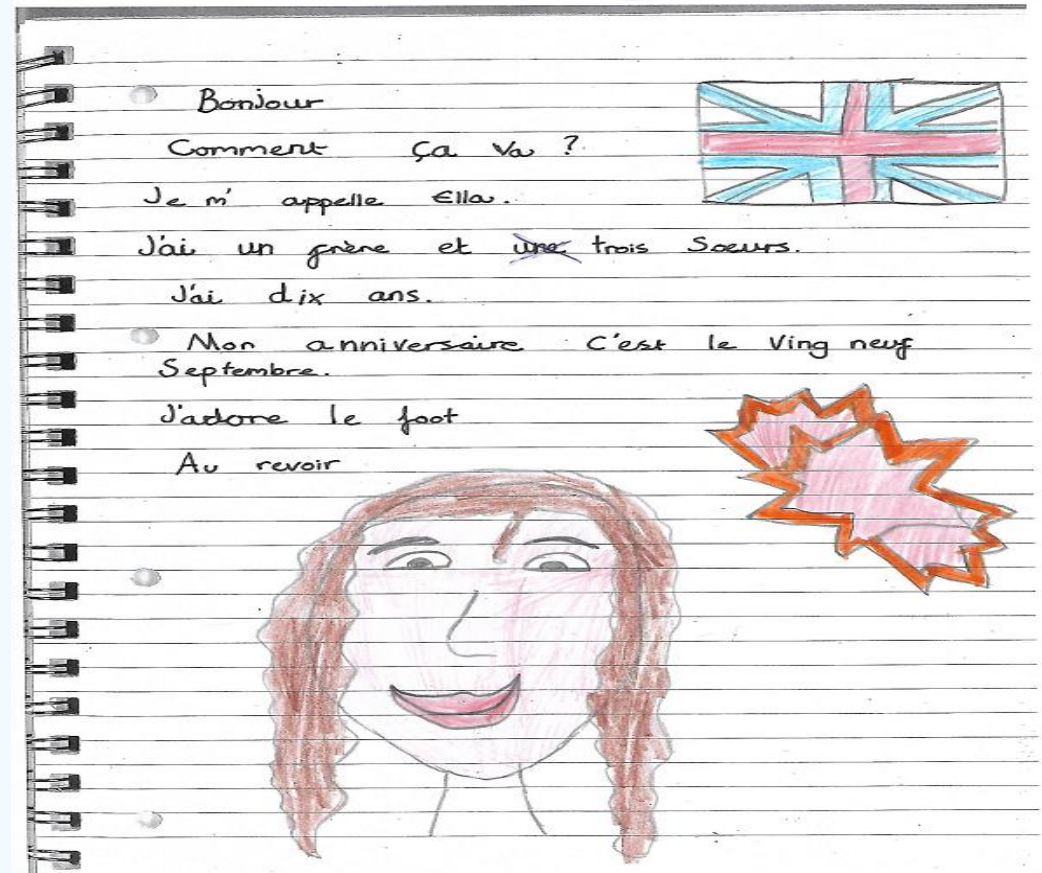 Bonjour
Comment ça va ?
Je m' appelle Ella.
J'ai un frère et une trois Soeurs.
J'ai dix ans.
Mon anniversaire C'est le Ving neuf
Septembre.
J'adore le foot
Au revoir